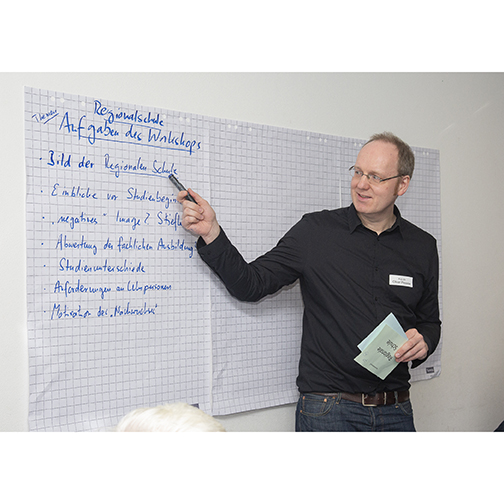 Regionalschule
Themen
Aufgaben des Workshops
· Bild der Regionalen Schule
· Einblicke vor Studienbeginn
· "negatives" Image?
· Abwertung der fachlichen Ausbildung
· Studienunterschiede
· Anforderungen an Lehrpersonen
· Motivation des "Nachwuchses"
Regionale
Schule